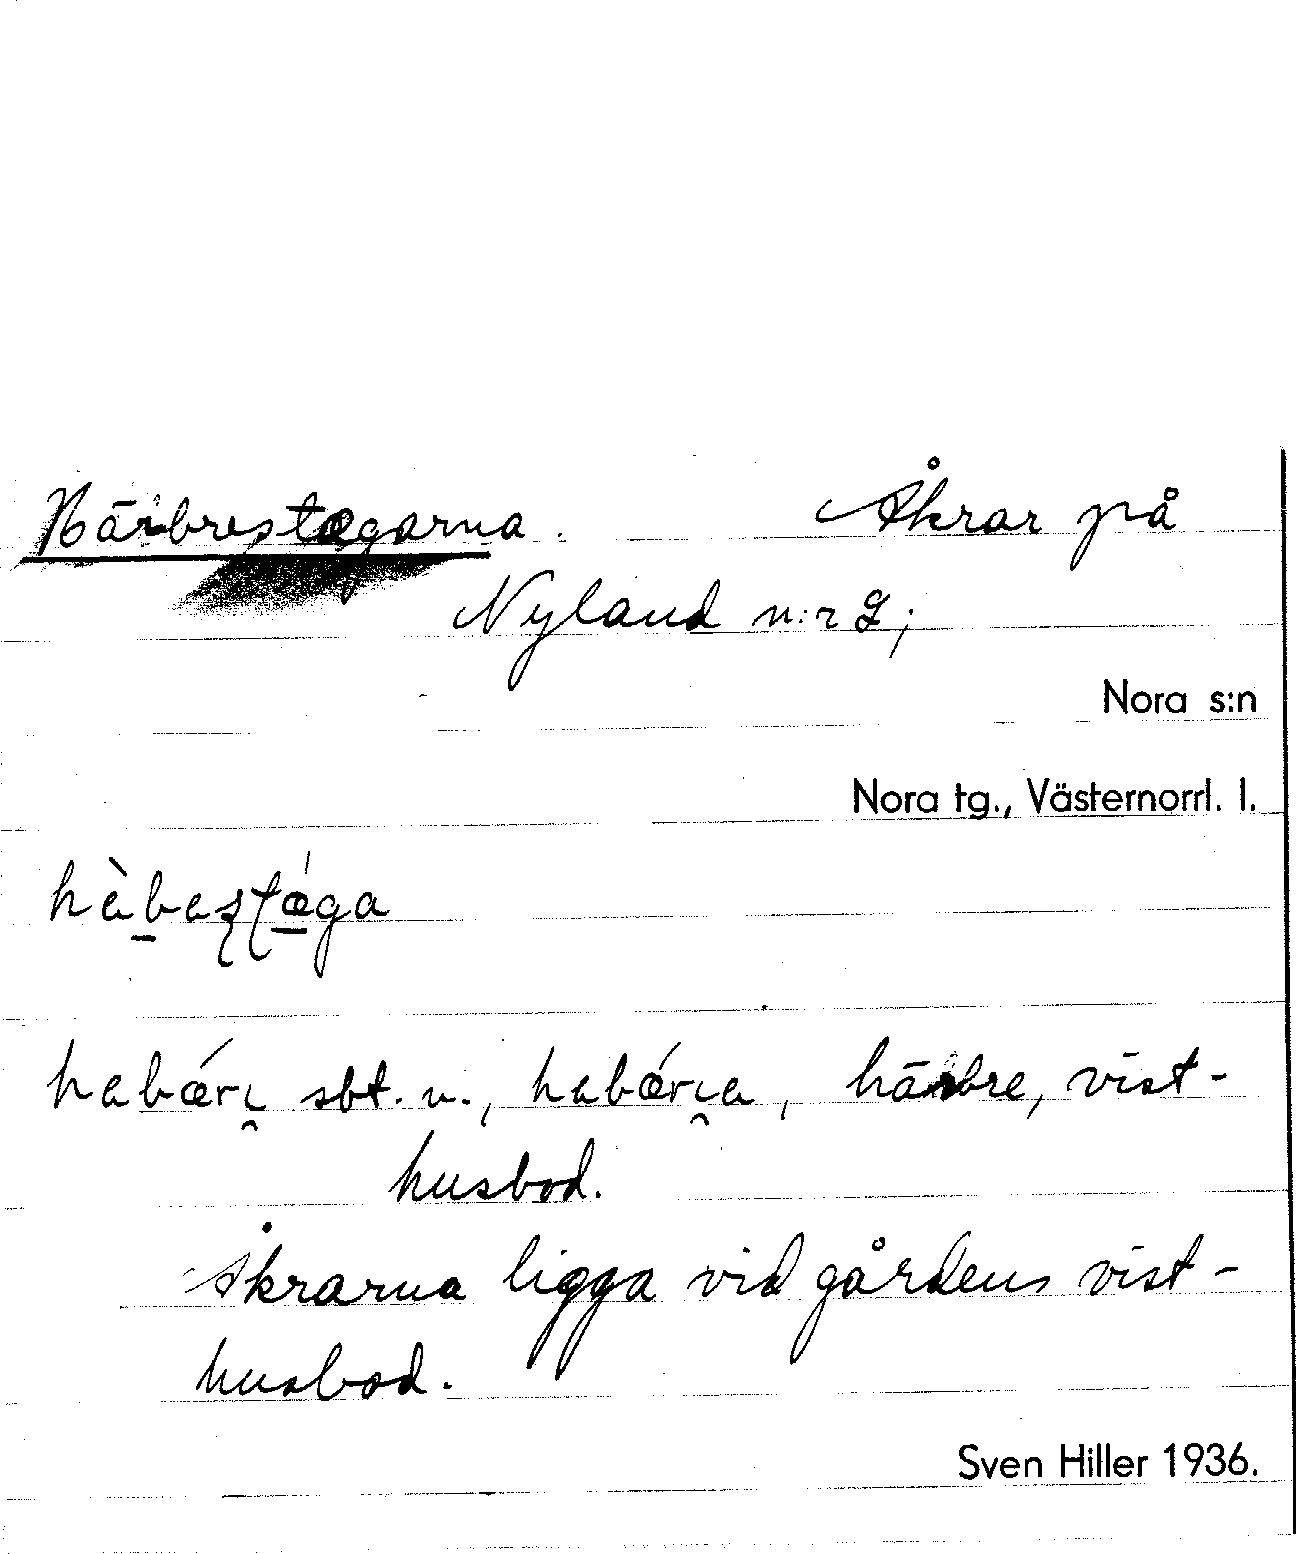 Härbrestægarna. Åkrar på
Nyland n:r 2;
Nora s:n
Nora tg., Västernorrl. l.
hàbasta̍ga
habǽri sbt. n., habǽria, härbre, vist-
husbod.
Åkrarna ligga vid gårdens vist-
husbod.
Sven Hiller 1936.